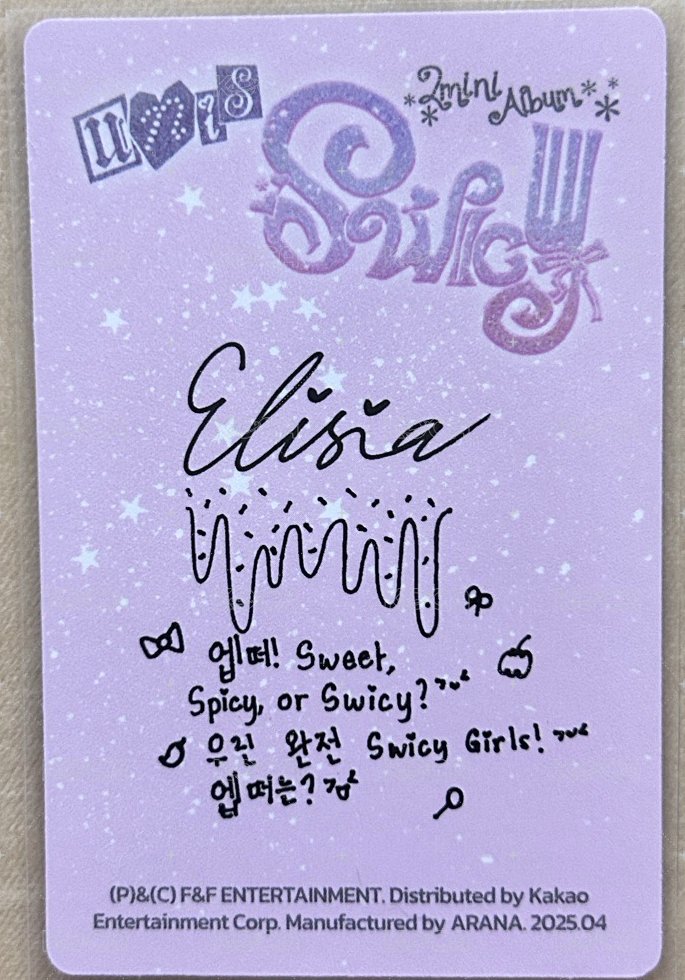 unis
2mini
Album
Swicy
Elisia
엡떠! Sweet,
Spicy, or Swicy?
우린 완전 Swicy Girls!
엡떠는?
(P)&(C) F&F ENTERTAINMENT. Distributed by Kakao
Entertainment Corp. Manufactured by ARANA. 2025.04